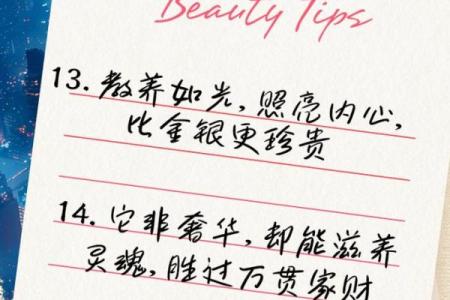 Beauty Tips
13. 教养如光，照亮内心，
比金银更珍贵
14. 它非奢华，却能滋养
灵魂，胜过万贯家财